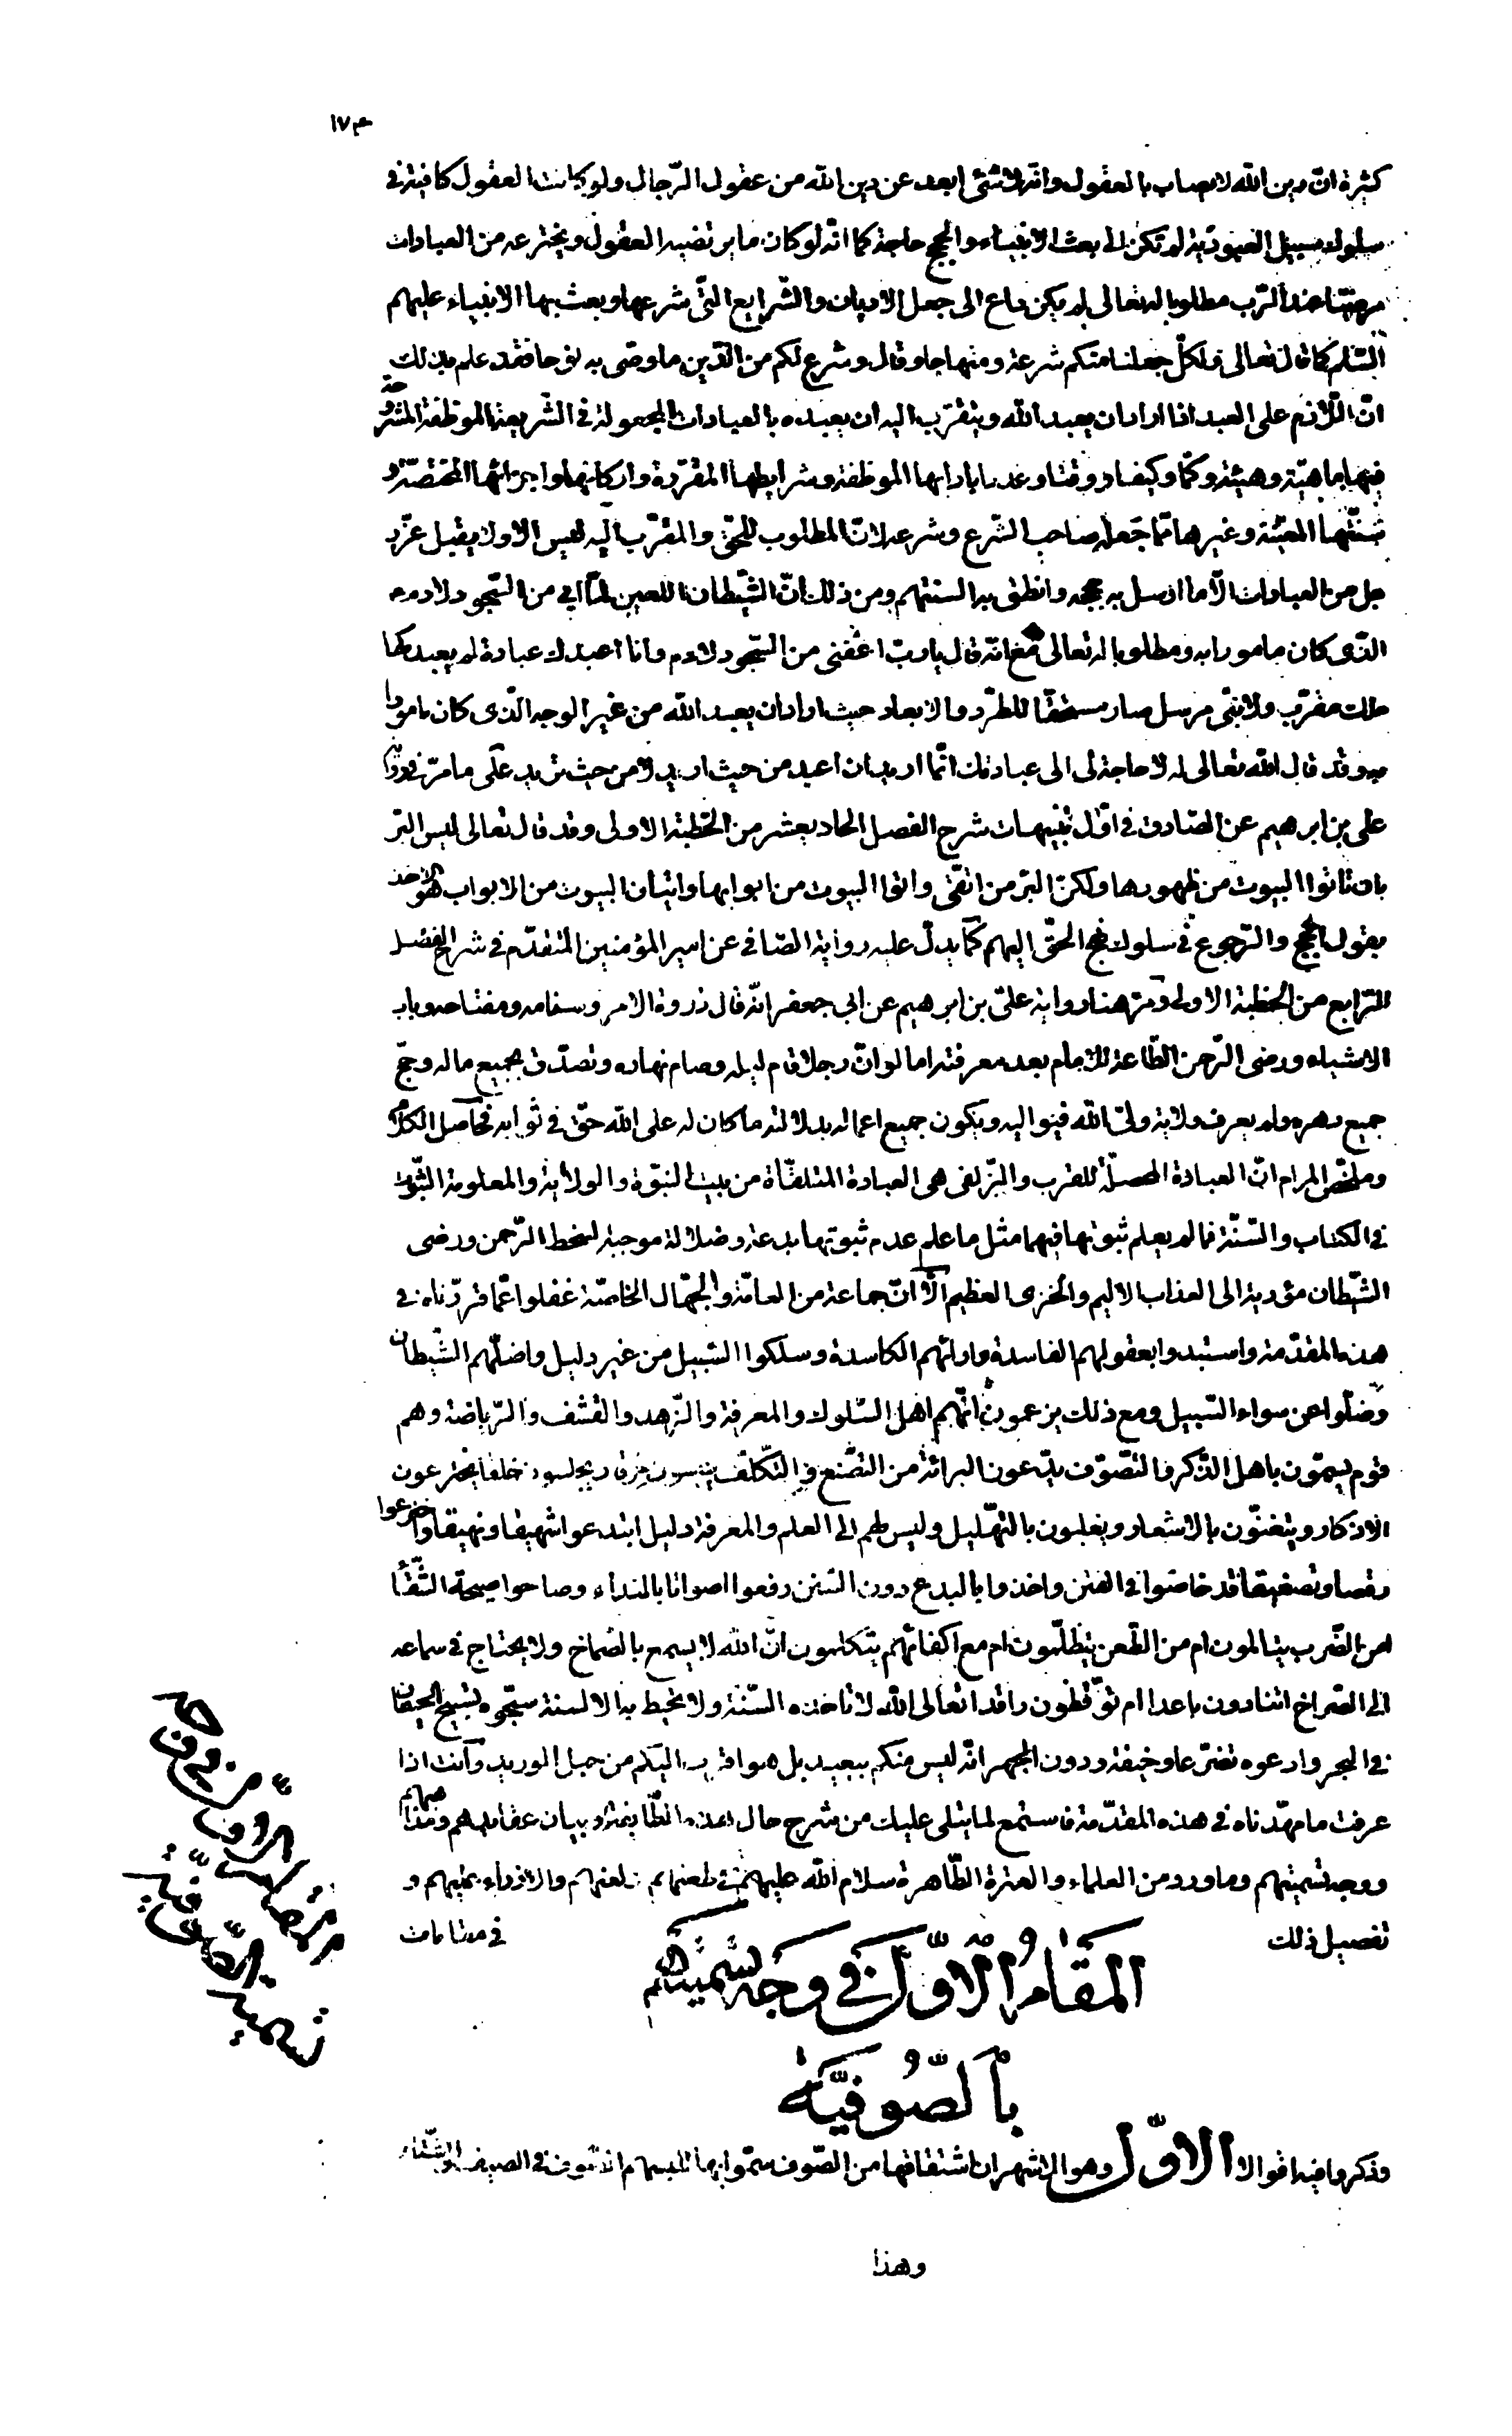 ١٧٣
كثيرة انّ دين الله لا يصاب بالعقول وانّه لا شئ ابعد عن دين الله من عقول الرّجال ولو كانت العقول كافية فى
سلوك سبيل العبوديّة لم تكن الى بعث الانبياء والحجج حاجة كما انّه لو كان ما يرتضيه العقول ويخترعه من العبادات
مرضيّا عند الرّب مطلوبا له تعالى لم يكن داع الى جعل الاديان والشّرايع الّتى شرعها وبعث بها الانبياء عليهم
السّلم كما قال تعالى ولكلّ جعلنا منكم شرعة ومنهاجا وقال وشرع لكم من الدّين ما وصّى به نوحا فقد علم بذلك
انّ اللّازم على العبد اذا اراد ان يعبد الله ويتقرّب اليه ان يعبده بالعبادات المجعولة فى الشّريعة الموظفة المشروحة
فيها بماهيّة وهيئة وكمّا وكيفا ووقتا وعددا بادابها الموظفة وشرايطها المقرّرة واركانها واجزائها المختصّة و
سنّتها المعيّنة وغيرها ممّا جعله صاحب الشّرع وشرعه لانّ المطلوب للحقّ والمقرّب اليه ليس الا ولا يقبل عزّ و
جل من العبادات الّا ما ارسل به حججه وانطق به السنتهم ومن ذلك انّ الشّيطان اللعين لمّا ابى من السّجود لادم
الّذى كان مامورا به ومطلوبا له تعالى مع انّه قال يا ربّ اعفنى من السّجود لادم وانا اعبدك عبادة لم يعبدكها
ملك مقرّب ولا نبىّ مرسل صار مستحقّا للطّرد والابعاد حيث اراد ان يعبد الله من غير الوجه الّذى كان مامورا
به وقد قال الله تعالى له لا حاجة لى الى عبادتك انّما اريد ان اعبد من حيث اريد لا من حيث تريد على ما مرّ فى رواية
على بن ابرهيم عن الصّادق فى اوّل تنبيهات شرح الفصل الحاديعشر من الخطبة الاولى وقد قال تعالى ليس البّر
بان تاتوا البيوت من ظهورها ولكنّ البّر من اتّقى واتوا البيوت من ابوابها واتيان البيوت من الابواب هو الاخذ
بقول الحجج والرّجوع فى سلوك نهج الحقّ اليهم كما يدلّ عليه رواية الصّافى عن امير المؤمنين المتقدّم فى شرح الفصل
الرّابع من الخطبة الاولى ومرّ هنا رواية علىّ بن ابرهيم عن ابى جعفر انّه قال ذروة الامر وسنامه ومفتاحه وباب
الاشياء ورضى الرّحمن الطّاعة للامام بعد معرفته اما لو انّ رجلا قام ليله وصام نهاره وتصدّق بجميع ماله وحجّ
جميع دهره ولم يعرف ولاية ولىّ الله فيواليه ويكون جميع اعماله بدلالته ما كان له على الله حقّ فى ثوابه فحاصل الكلام
وملخّص المرام انّ العبادة المحصّلة للقرب والزّلفى هى العبادة المتلقّاة من بيت النبوّة والولاية والمعلومة الثّبوت
فى الكتاب والسّنّة فما لم يعلم ثبوتها فيهما مثل ما علم عدم ثبوتها بدعة وضلالة موجبة لسخط الرّحمن ورضى
الشّيطان مؤدية الى العذاب الاليم والخزى العظيم الّا انّ جماعة من العامّة والجهّال الخاصّة غفلوا عمّا قرّرناه فى
هذه المقدّمة واستبدوا بعقولهم الفاسدة وارائهم الكاسدة وسلكوا السّبيل من غير دليل واضلّهم الشّيطان
وضلّوا عن سواء السّبيل ومع ذلك يزعمون انّهم اهل السّلوك والمعرفة والزّهد والقشف والرّياضة وهم
قوم يسمّون باهل الذّكر والتصوّف يدّعون البرائة من التصّنع والتكلّف يلبسون خرقا ويجلسون خلقا يخترعون
الاذكار ويتغنّون بالاشعار ويعلنون بالتهّليل وليس لهم الى العلم والمعرفة دليل ابتدعوا شهيقا ونهيقا واخترعوا
رقصا وتصفيقا قد خاضوا فى الفتن واخذوا بالبدع دون السّنن رفعوا اصواتا بالنداء وصاحوا صيحة الشّقاء
امن الضّرب يتالمون ام من الطّعن يتظلّمون ام مع اكفائهم يتكلمون انّ الله لا يسمع بالصّماخ ولا يحتاج فى سماعه
الى الصّراخ اتنادون باعدا ام توّقظون راقدا تعالى الله لا تاخذه السّنة ولا تحيط به الالسنة سبّحوه تسبيح الحيتان
فى البحر وادعوه تضرّعا وخيفة ودون الجهر انّه ليس منكم ببعيد بل هو اقرب اليكم من حبل الوريد وانت اذا
عرفت ما مهّدناه فى هذه المقدّمة فاستمع لما يتلى عليك من شرح حال هذه الطّايفة وبيان عقايدهم ومذاهبهم
ووجه تسميتهم وما ورد من العلماء والعترة الطّاهرة سلام الله عليهم فى طعنهم ولعنهم والازراء عليهم و
تفصيل ذلك فى مقامات
المقام الاوّل فى وجه تسميتهم
بالصّوفيّة
وذكروا فيه اقوالا الاوّل وهو الاشهر ان اشتقاقها من الصّوف سمّوا بها للبسهم الصّوف فى الصيف والشّتاء
وهذا